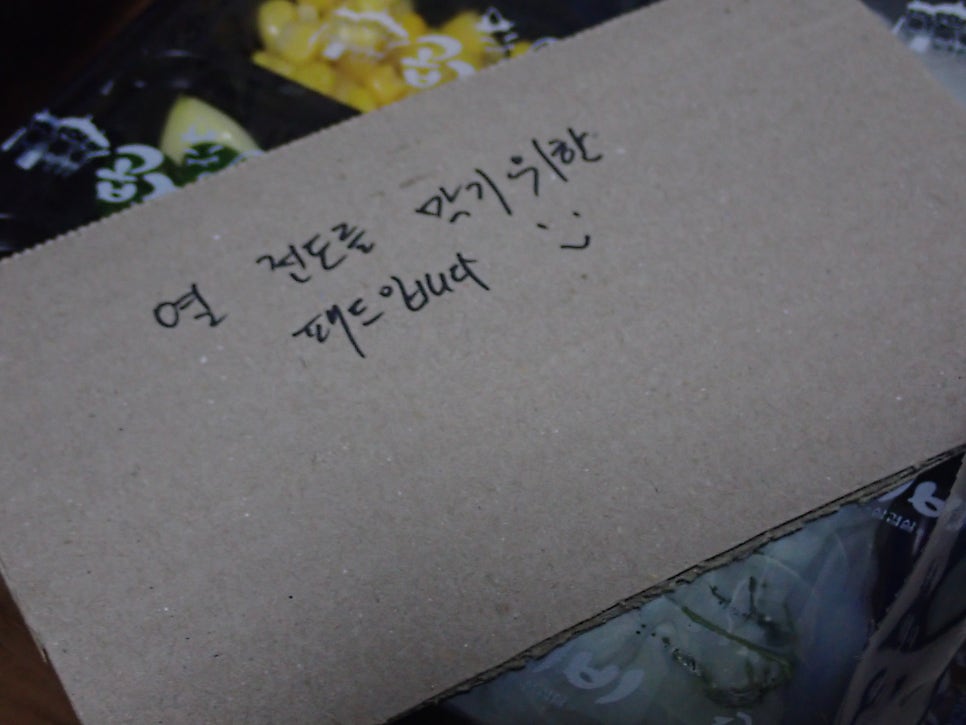 열 전도를 막기 위한
패드입니다 :)